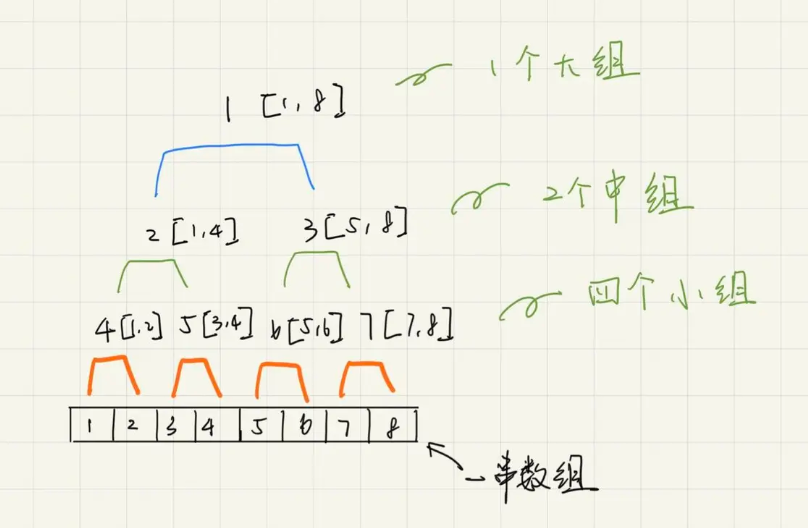 1 [1,8] 1个大组
2 [1,4] 3 [5,8] 2个中组
4 [1,2] 5 [3,4] 6 [5,6] 7 [7,8] 四个小组
1 2 3 4 5 6 7 8
一串数组